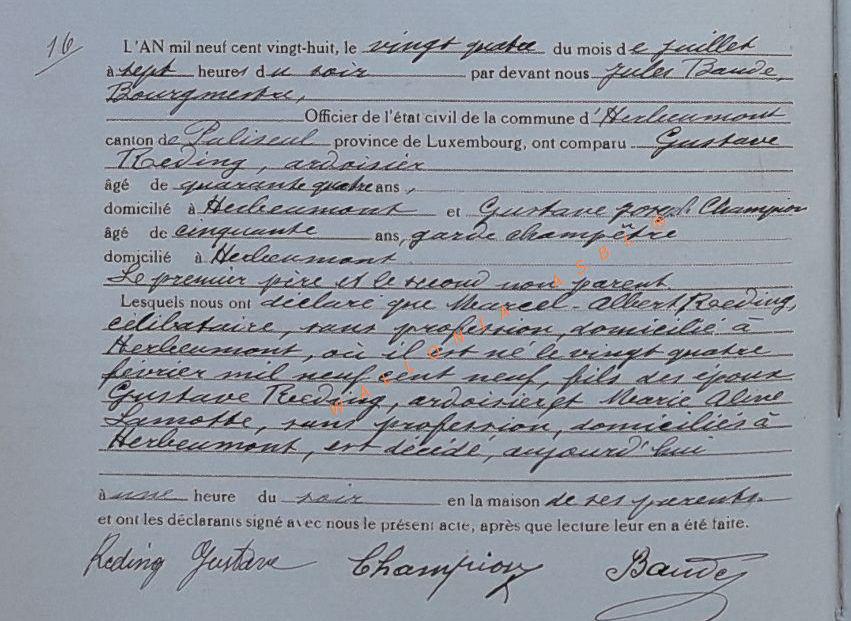 16
L'AN mil neuf cent vingt-huit, le vingt quatre du mois de juillet
à sept heures du soir par devant nous Jules Baude,
Bourgmestre,
Officier de l'état civil de la commune d'Herbeumont
canton de Paliseul province de Luxembourg, ont comparu Gustave
Reding, ardoisier
âgé de quarante quatre ans,
domicilié à Herbeumont et Gustave Joseph Champion
âgé de cinquante ans, garde champêtre
domicilié à Herbeumont
Le premier père et le second non parent
Lesquels nous ont déclaré que Marcel-Albert Reding,
célibataire, sans profession, domicilié à
Herbeumont, où il est né le vingt quatre
février mil neuf cent neuf, fils des époux
Gustave Reding, ardoisier et Marie Aline
Lamotte, sans profession, domiciliés à
Herbeumont, est décédé, aujourd'hui
à une heure du soir en la maison de ses parents
et ont les déclarants signé avec nous le présent acte, après que lecture leur en a été faite.
Reding Gustave Champion Baude
WALLONIA ASBL ©